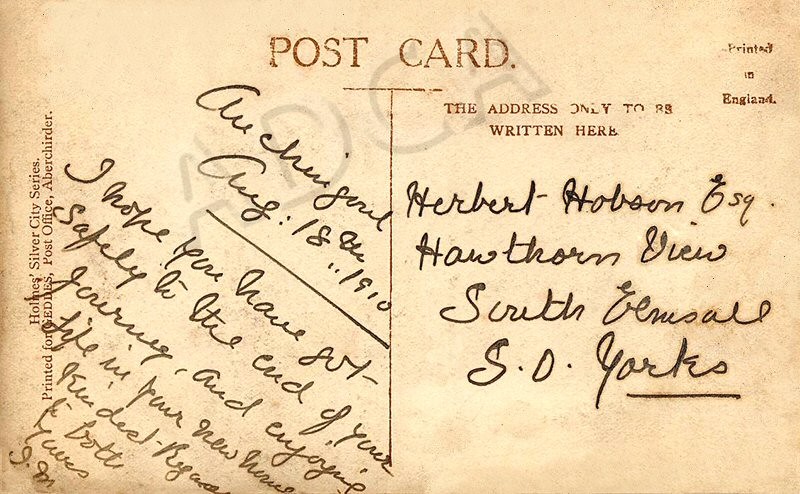 POST CARD.
Printed
in
England.
THE ADDRESS ONLY TO BE
WRITTEN HERE
Holmes' Silver City Series.
Printed for GEDDES, Post Office, Aberchirder.
Auchingoul
Aug: 18th 1910
I hope you have got
safely to the end of your
journey, and enjoying
life in your new home
Kindest Regards
to both
Yours
J. M
Herbert Hobson Esq.
Hawthorn View
South Elmsall
S. O. Yorks
ADCA